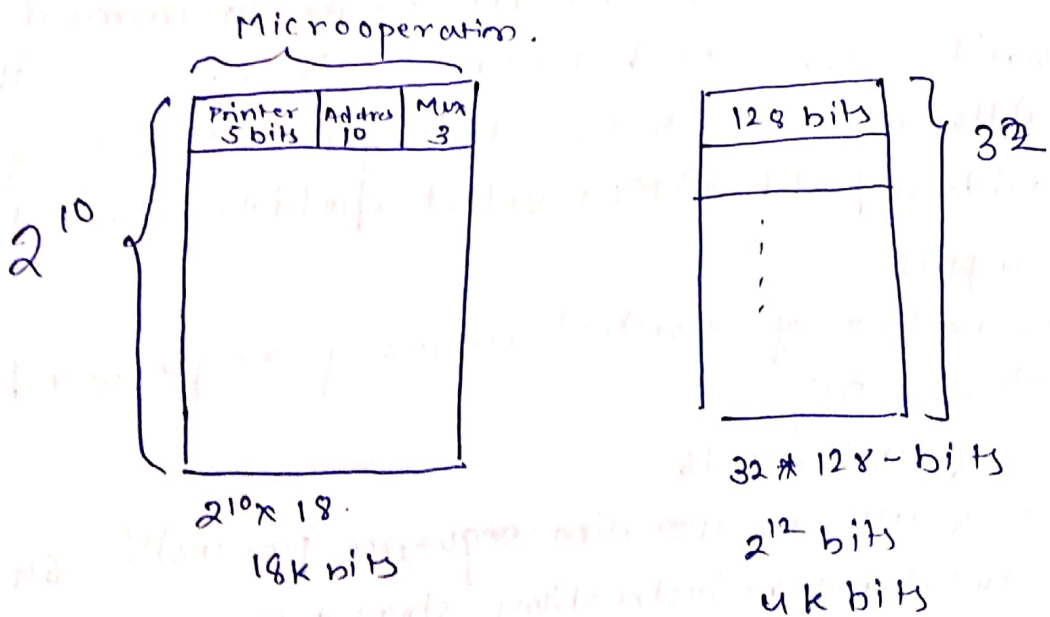 Microoperation.
Printer Addres Mux
5 bits 10 3
2^10
2^10 x 18.
18k bits
128 bits
32
32 * 128 - bits
2^12 bits
4k bits